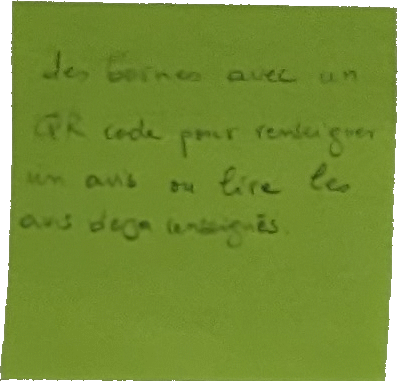 des bornes avec un
QR code pour renseigner
un avis ou lire les
avis deja renseignés.